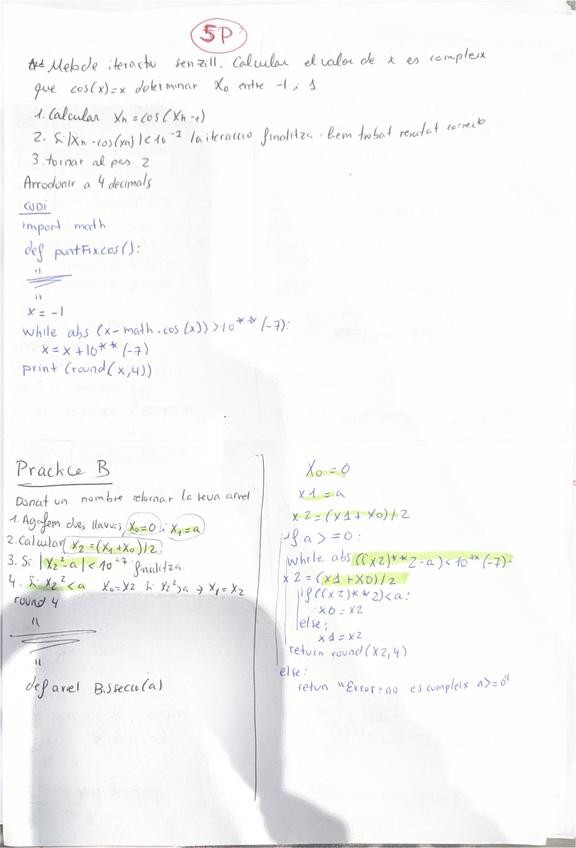 5P
Metode iteractiu senzill. Calcular el valor de x es compleix
que cos(x)=x determinar X0 entre -1 i 1
1. Calcular Xn = cos(Xn-1)
2. Si |Xn - cos(xn)| < 10^-7 la iteraccio finalitza. hem trobat resultat correcte
3. tornar al pas 2
Arrodonir a 4 decimals
CODI
import math
def puntFixcos():
"
"
x = -1
while abs (x-math.cos(x))>10**(-7):
x=x+10**(-7)
print (round(x,4))
Practica B
Donat un nombre retornar la seva arrel
1. Agafem dues llavors, X0=0 i X1=a
2. Calcular X2=(X1+X0)/2
3. Si |X2²-a|<10^-7 finalitza
4. Si X2²<a X0=X2 Si X2²>a → X1=X2
round 4
"
"
def arrel Bisseccio(a)
X0=0
x1=a
x2=(x1+x0)/2
if a>=0:
while abs((x2)**2-a)<10**(-7):
x2=(x1+x0)/2
if((x2)**2)<a:
x0=x2
else:
x1=x2
return round(x2,4)
else:
retun "Error: no es cumpleix a>=0"